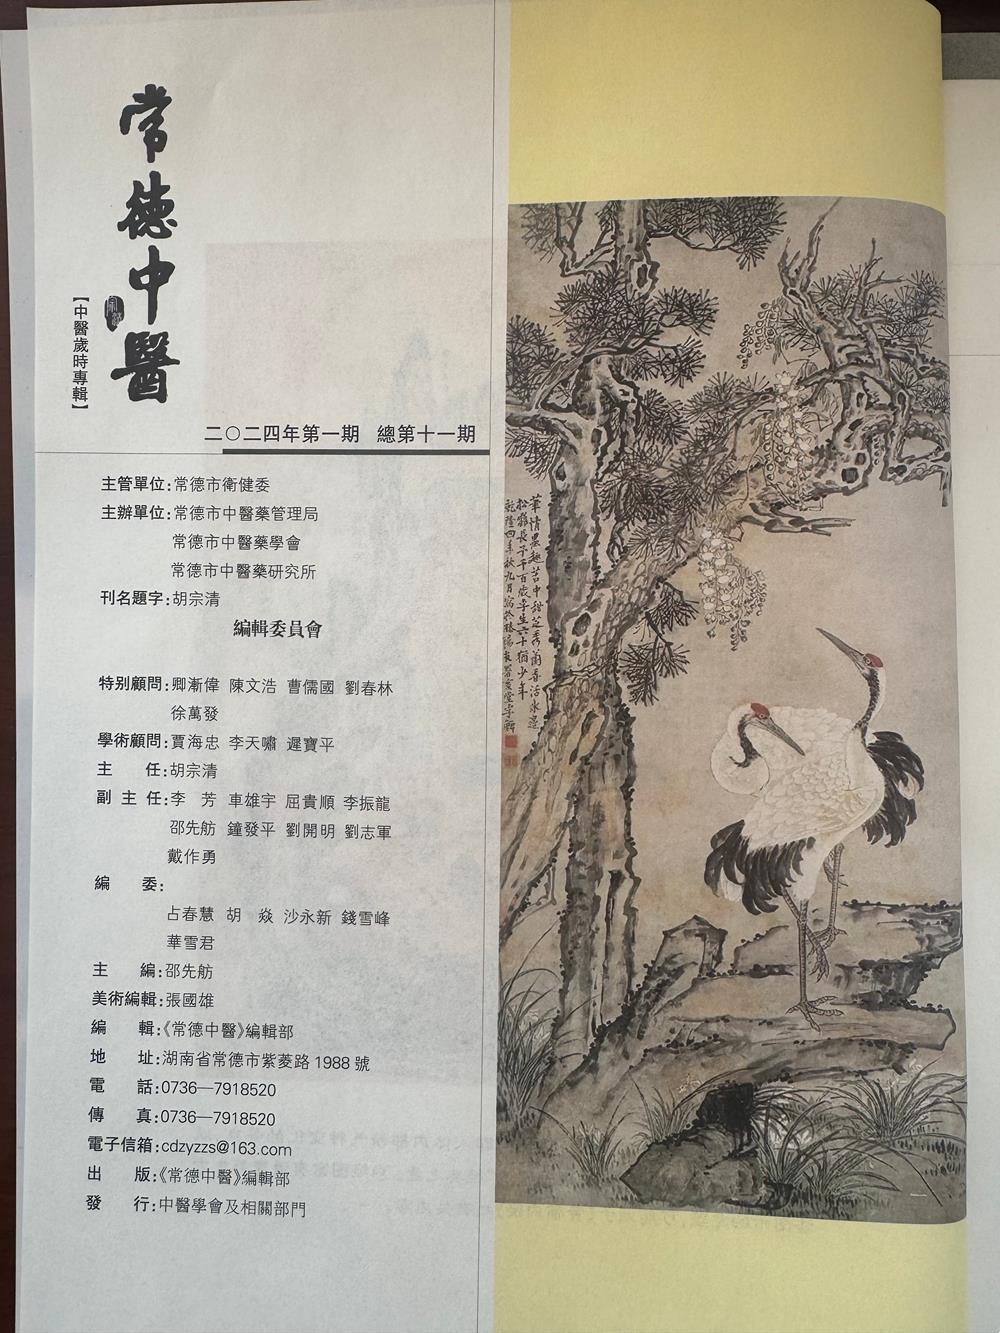 常德中醫
【中醫歲時專輯】
二〇二四年第一期 總第十一期
主管單位:常德市衛健委
主辦單位:常德市中醫藥管理局
常德市中醫藥學會
常德市中醫藥研究所
刊名題字:胡宗清
編輯委員會
特别顧問:卿漸偉 陳文浩 曹儒國 劉春林
徐萬發
學術顧問:賈海忠 李天嘯 遲寶平
主 任:胡宗清
副 主 任:李 芳 車雄宇 屈貴順 李振龍
邵先舫 鐘發平 劉開明 劉志軍
戴作勇
編 委:
占春慧 胡 焱 沙永新 錢雪峰
華雪君
主 編:邵先舫
美術編輯:張國雄
編 輯:《常德中醫》編輯部
地 址:湖南省常德市紫菱路1988號
電 話:0736—7918520
傳 真:0736—7918520
電子信箱:cdzyzzs@163.com
出 版:《常德中醫》編輯部
發 行:中醫學會及相關部門
筆情墨趣苦中甜芝秀蘭香活水邊
松鶴長予千百歲平生六十猶少年
乾隆四年秋九月寫於